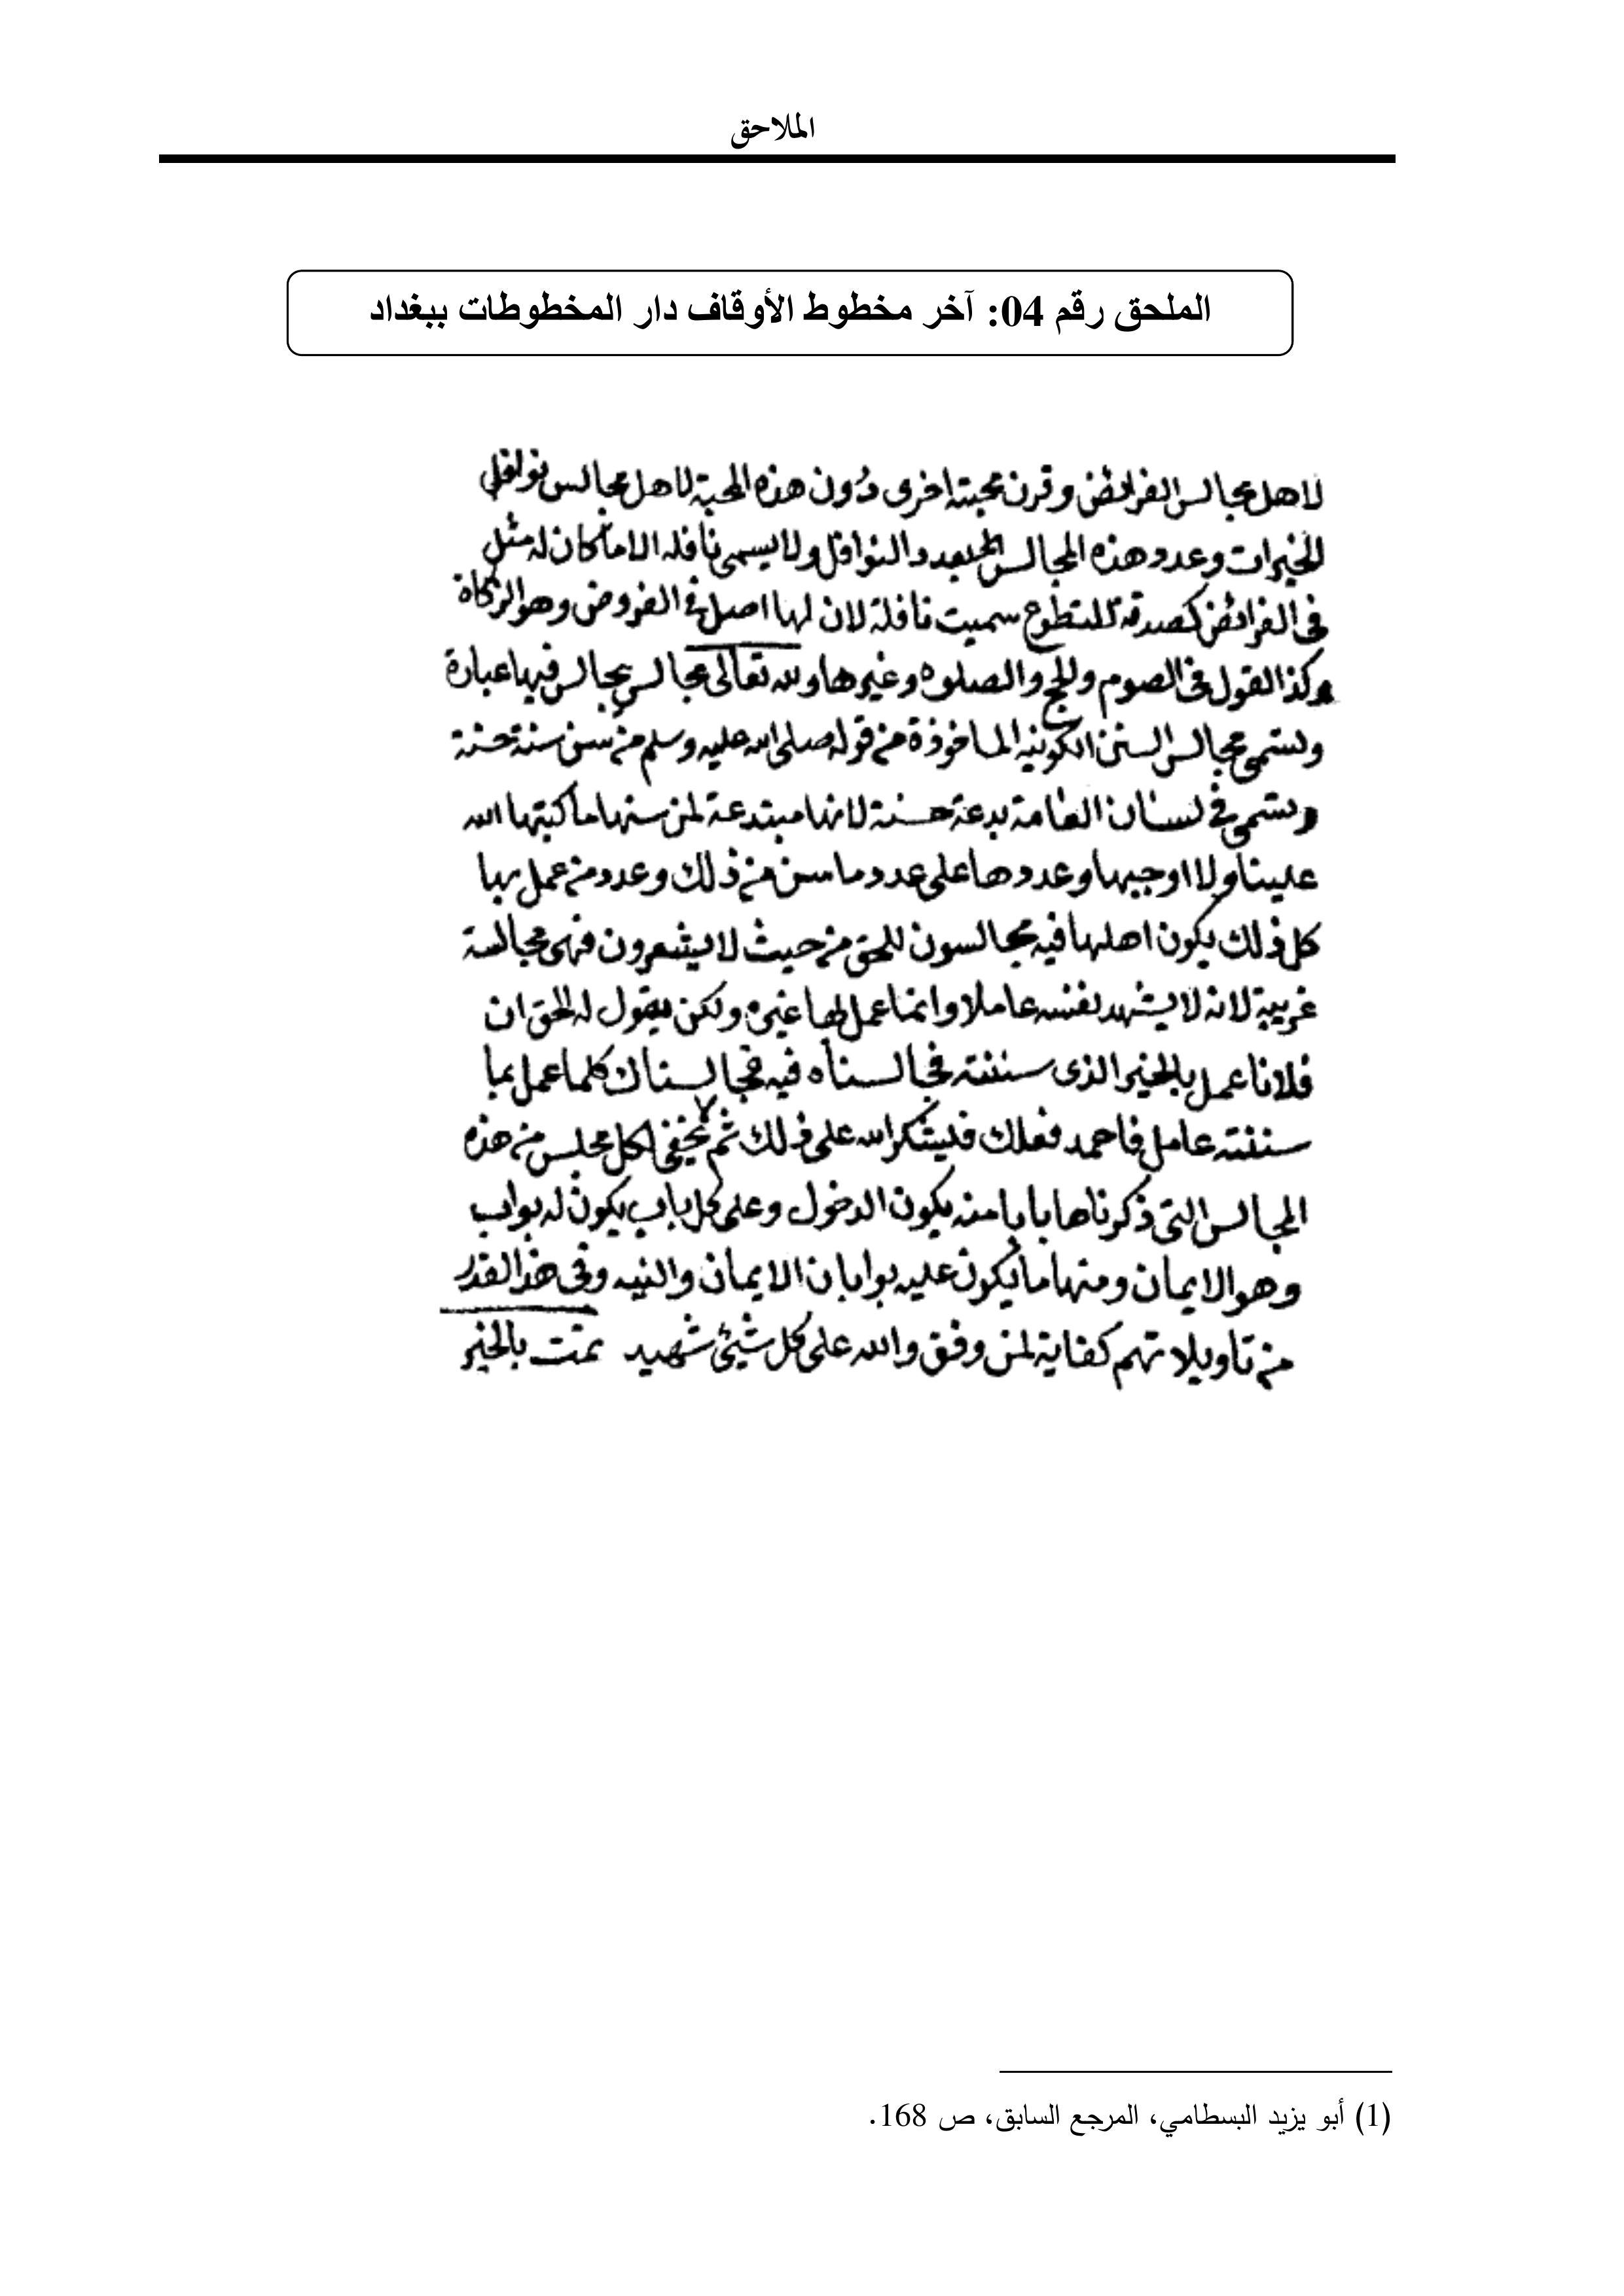 الملاحق
الملحق رقم 04: آخر مخطوط الأوقاف دار المخطوطات ببغداد
لاهل مجالس الفرائض وقرن محبته اخرى دون هذه المحبة لاهل مجالس نوافل
الخيرات وعدد هذه المجالس بعدد النوافل ولا يسمى نافله الا ما كان له مثل
فى الفرائض كصدقة التطوع سميت نافلة لان لها اصل فى الفروض وهو الزكاة
وكذا القول فى الصوم والحج والصلوه وغيرها ولله تعالى مجالس مجالس فيها عبارة
وتسمى مجالس السنن الكونيه الماخوذة من قوله صلى الله عليه وسلم من سن سنة حسنة
وتسمى فى لسان العامة بدعة حسنة لانها مبتدعة لمن سنها ما كتبها الله
علينا ولا اوجبها وعددها على عدد ما سن من ذلك وعدد من عمل بها
كل ذلك يكون اهلها فيه مجالسون للحق من حيث لا يشعرون فهى مجالسة
غريبة لانه لا يشهد نفسه عاملا وانما عمل لها غيره ولكن يقول له الحق ان
فلانا عمل بالخير الذى سننته فجالسناه فيه فجالسناك كلما عمل بما
سننته عامل فاحمد فعلك فليشكر الله على ذلك ثم لا يخفى لكل مجلس من هذه
المجالس التى ذكرناها بابا منه يكون الدخول وعلى كل باب يكون له بواب
وهو الايمان ومنها ما يكون عليه بوابان الايمان والنيه وفى هذا القدر
من تاويلاتهم كفاية لمن وفق والله على كل شيئ شهيد تمت بالخير
(1) أبو يزيد البسطامي، المرجع السابق، ص 168.